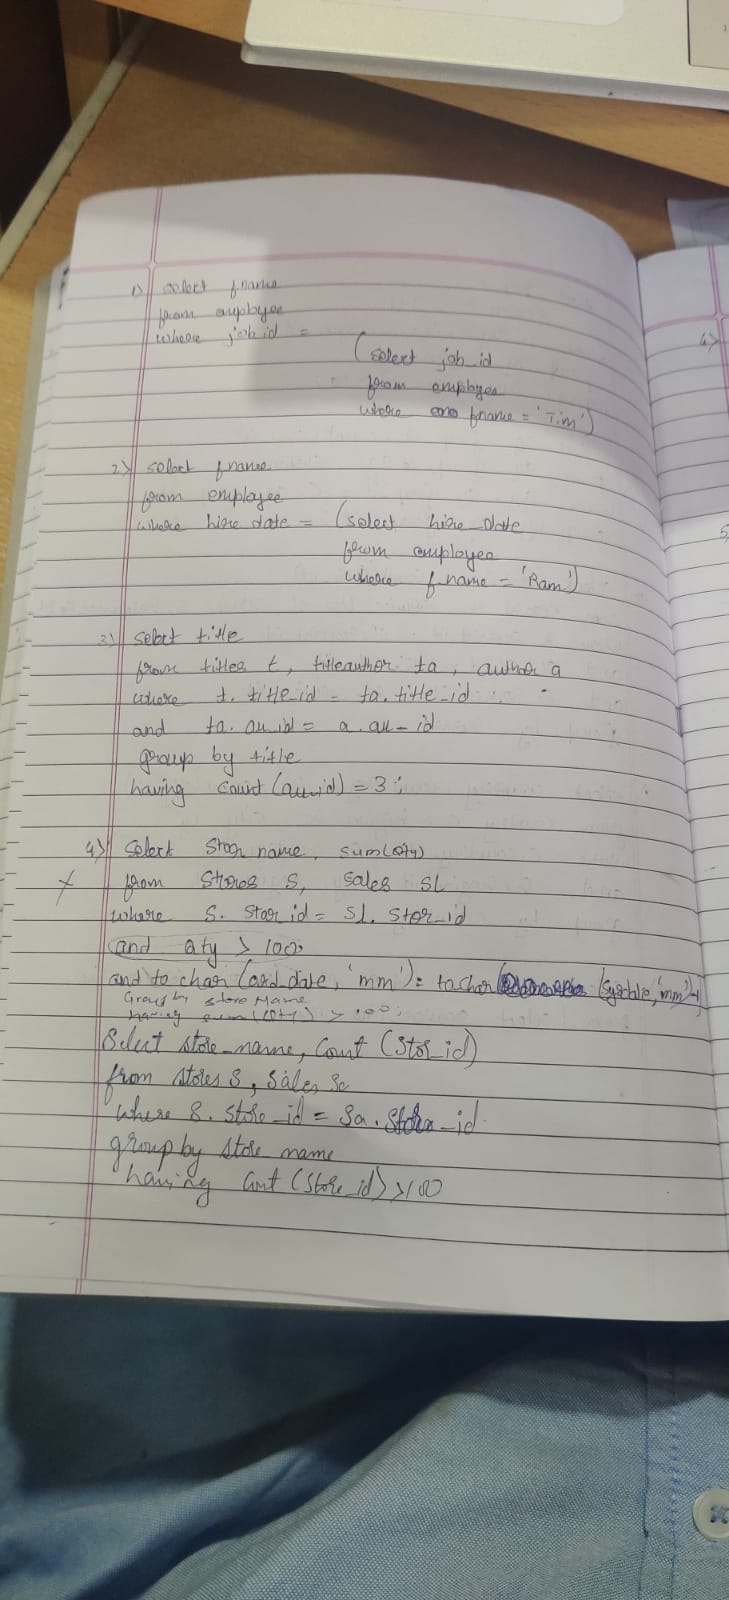 1) select fname
from employee
where job id =
(select job_id
from employee
where fname = 'Tim')
2) select fname
from employee
where hire date = (select hire_date
from employee
where f_name = 'Ram')
3) select title
from titles t, titleauthor ta, author a
where t. title_id = ta. title_id
and ta. au_id = a. au_id
group by title
having count (au_id) = 3;
4) Select Stor name, sum(qty)
x from Stores S, sales SL
where S. Stor id = SL. Stor_id
and qty > 100;
and to char (ord_date, 'mm') = to char (sysdate, 'mm')-1
Group by store Name
having sum (qty) > 100;
Select store_name, Count (Stor_id)
from stores S, Sales Sa
where S. store_id = Sa. Stor_id
group by store name
having Cout (Store_id) >100
4)
5